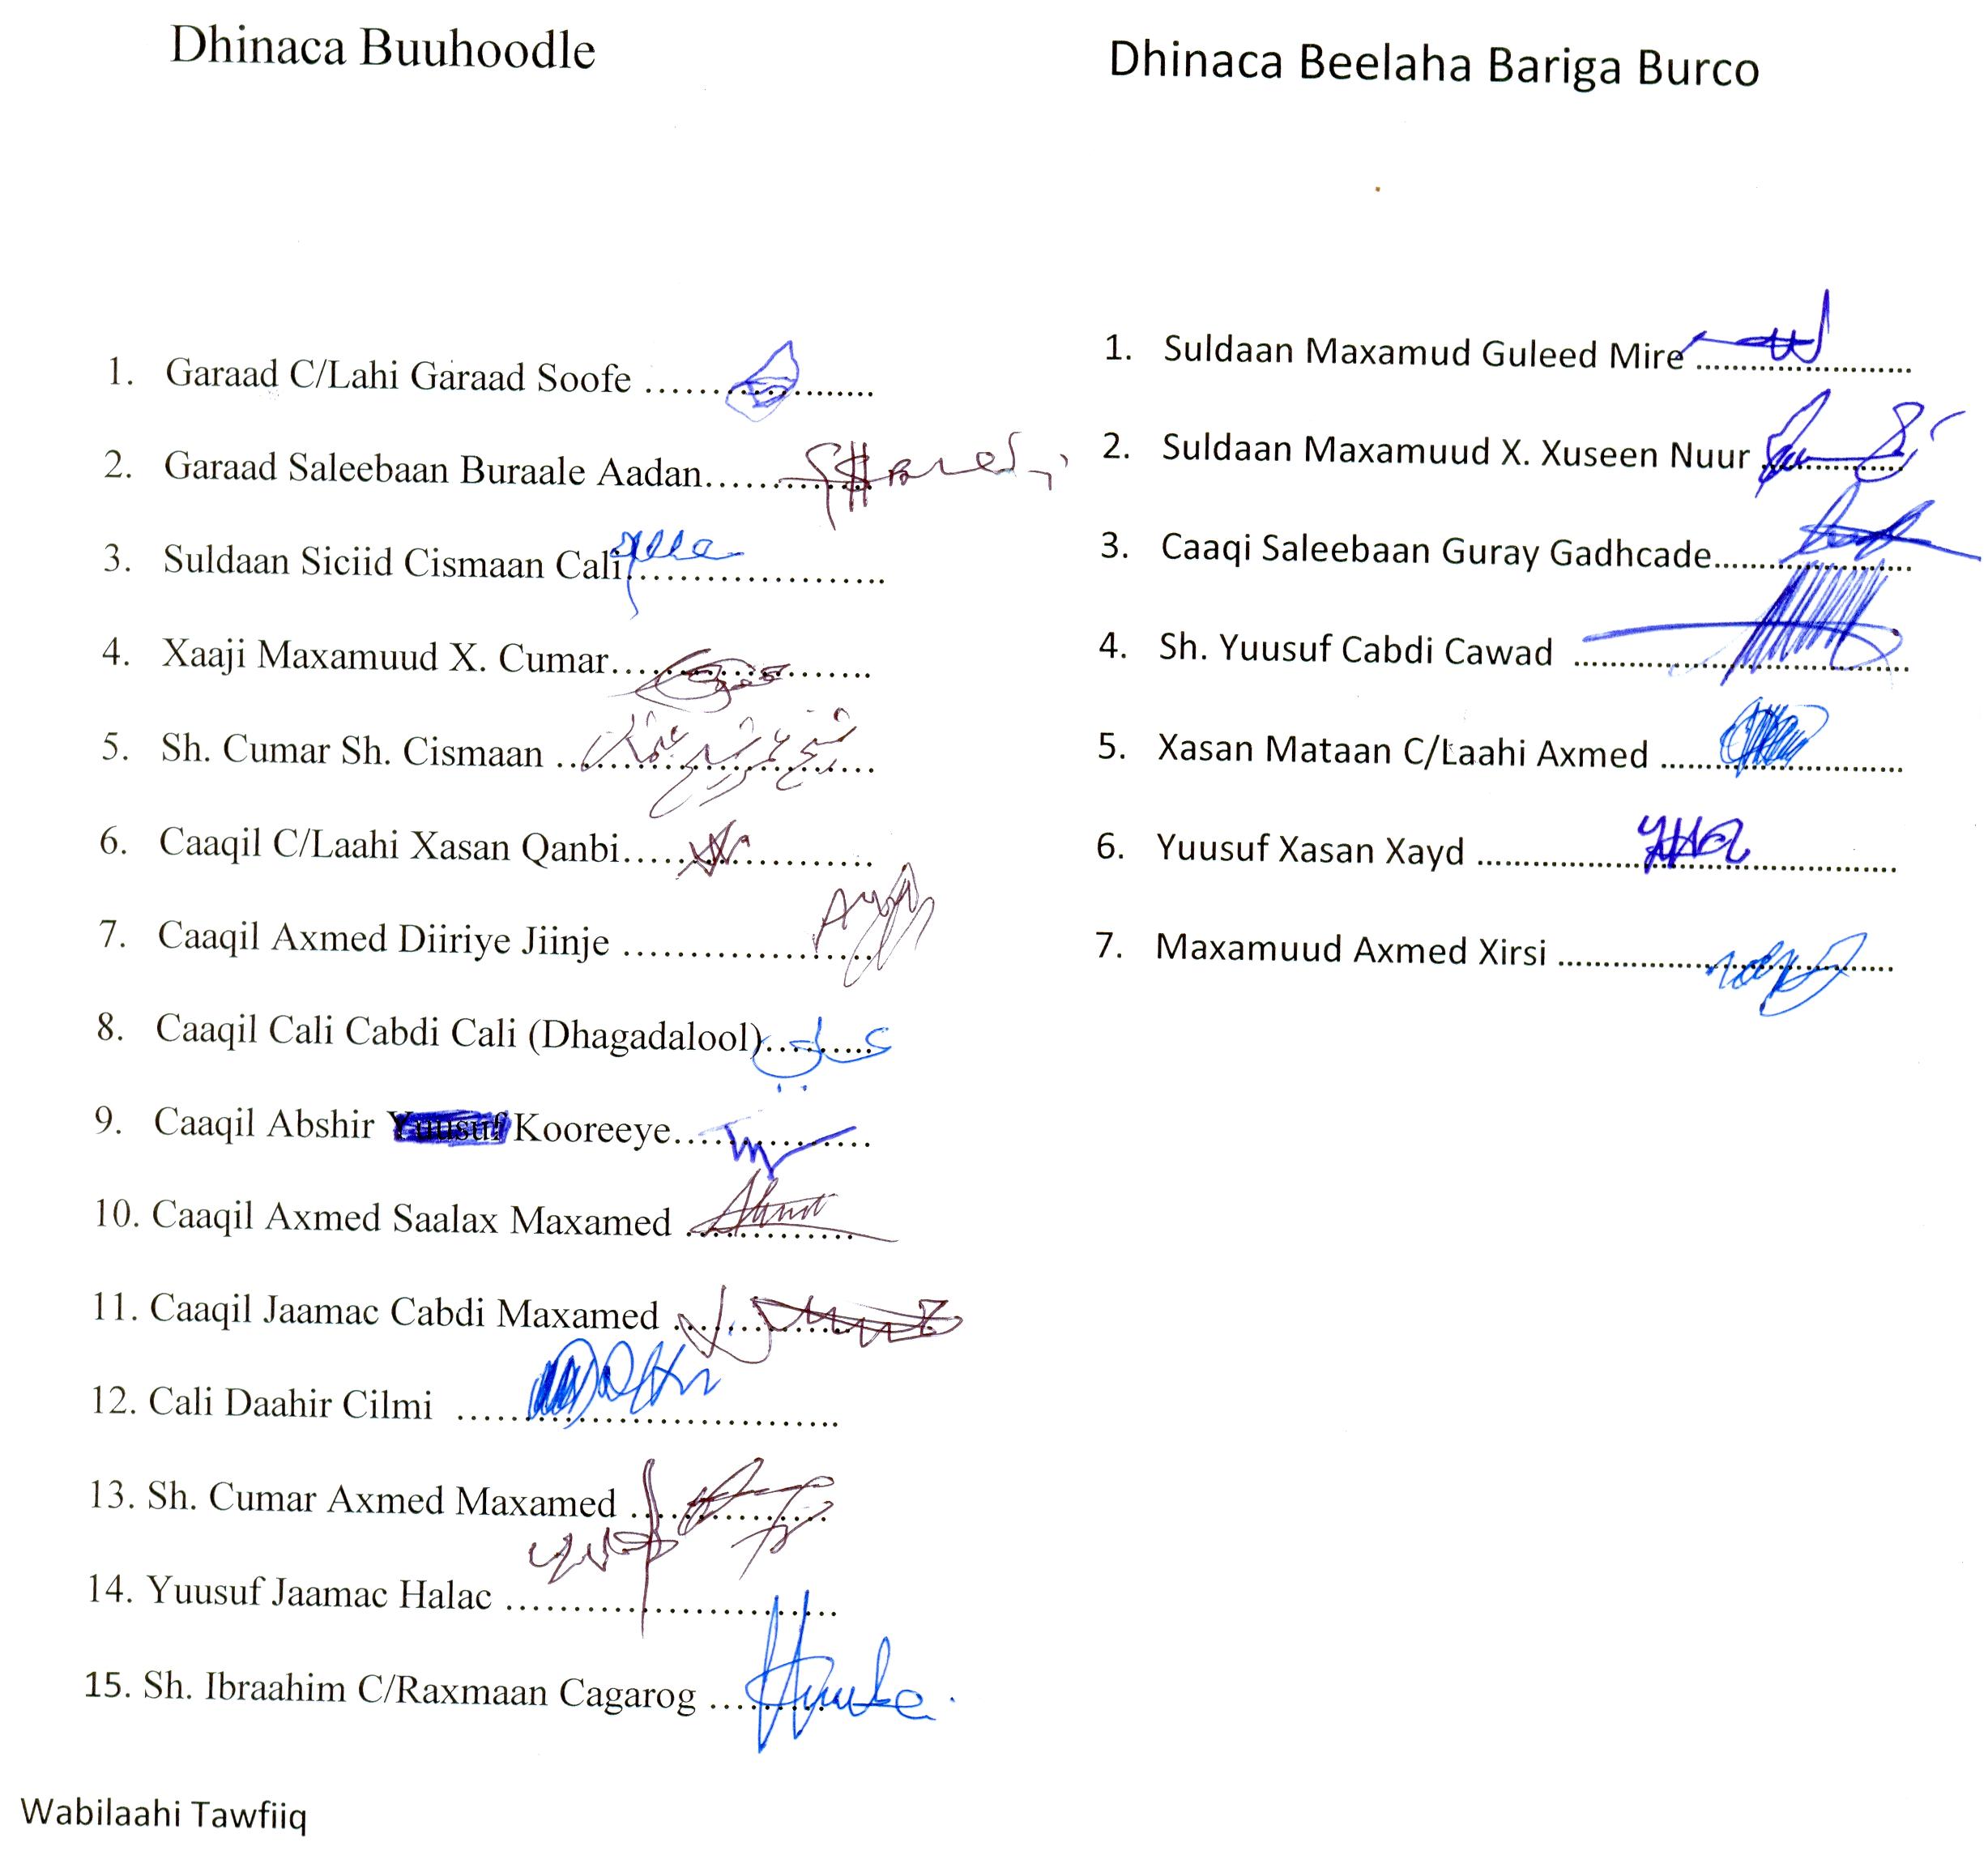 Dhinaca Buuhoodle
1. Garaad C/Lahi Garaad Soofe ....................
2. Garaad Saleebaan Buraale Aadan...............
3. Suldaan Siciid Cismaan Cali......................
4. Xaaji Maxamuud X. Cumar.......................
5. Sh. Cumar Sh. Cismaan ...........................
شيخ عمر شيخ عثمان
6. Caaqil C/Laahi Xasan Qanbi.....................
7. Caaqil Axmed Diiriye Jiinje .....................
8. Caaqil Cali Cabdi Cali (Dhagadalool)..........
علي
9. Caaqil Abshir Yuusuf Kooreeye..................
10. Caaqil Axmed Saalax Maxamed ...............
11. Caaqil Jaamac Cabdi Maxamed ................
12. Cali Daahir Cilmi .................................
13. Sh. Cumar Axmed Maxamed ..................
14. Yuusuf Jaamac Halac ............................
15. Sh. Ibraahim C/Raxmaan Cagarog ..........
Wabilaahi Tawfiiq
Dhinaca Beelaha Bariga Burco
1. Suldaan Maxamud Guleed Mire ........................
2. Suldaan Maxamuud X. Xuseen Nuur ................
3. Caaqi Saleebaan Guray Gadhcade......................
4. Sh. Yuusuf Cabdi Cawad ......................................
5. Xasan Mataan C/Laahi Axmed ...........................
6. Yuusuf Xasan Xayd ...............................................
7. Maxamuud Axmed Xirsi ......................................